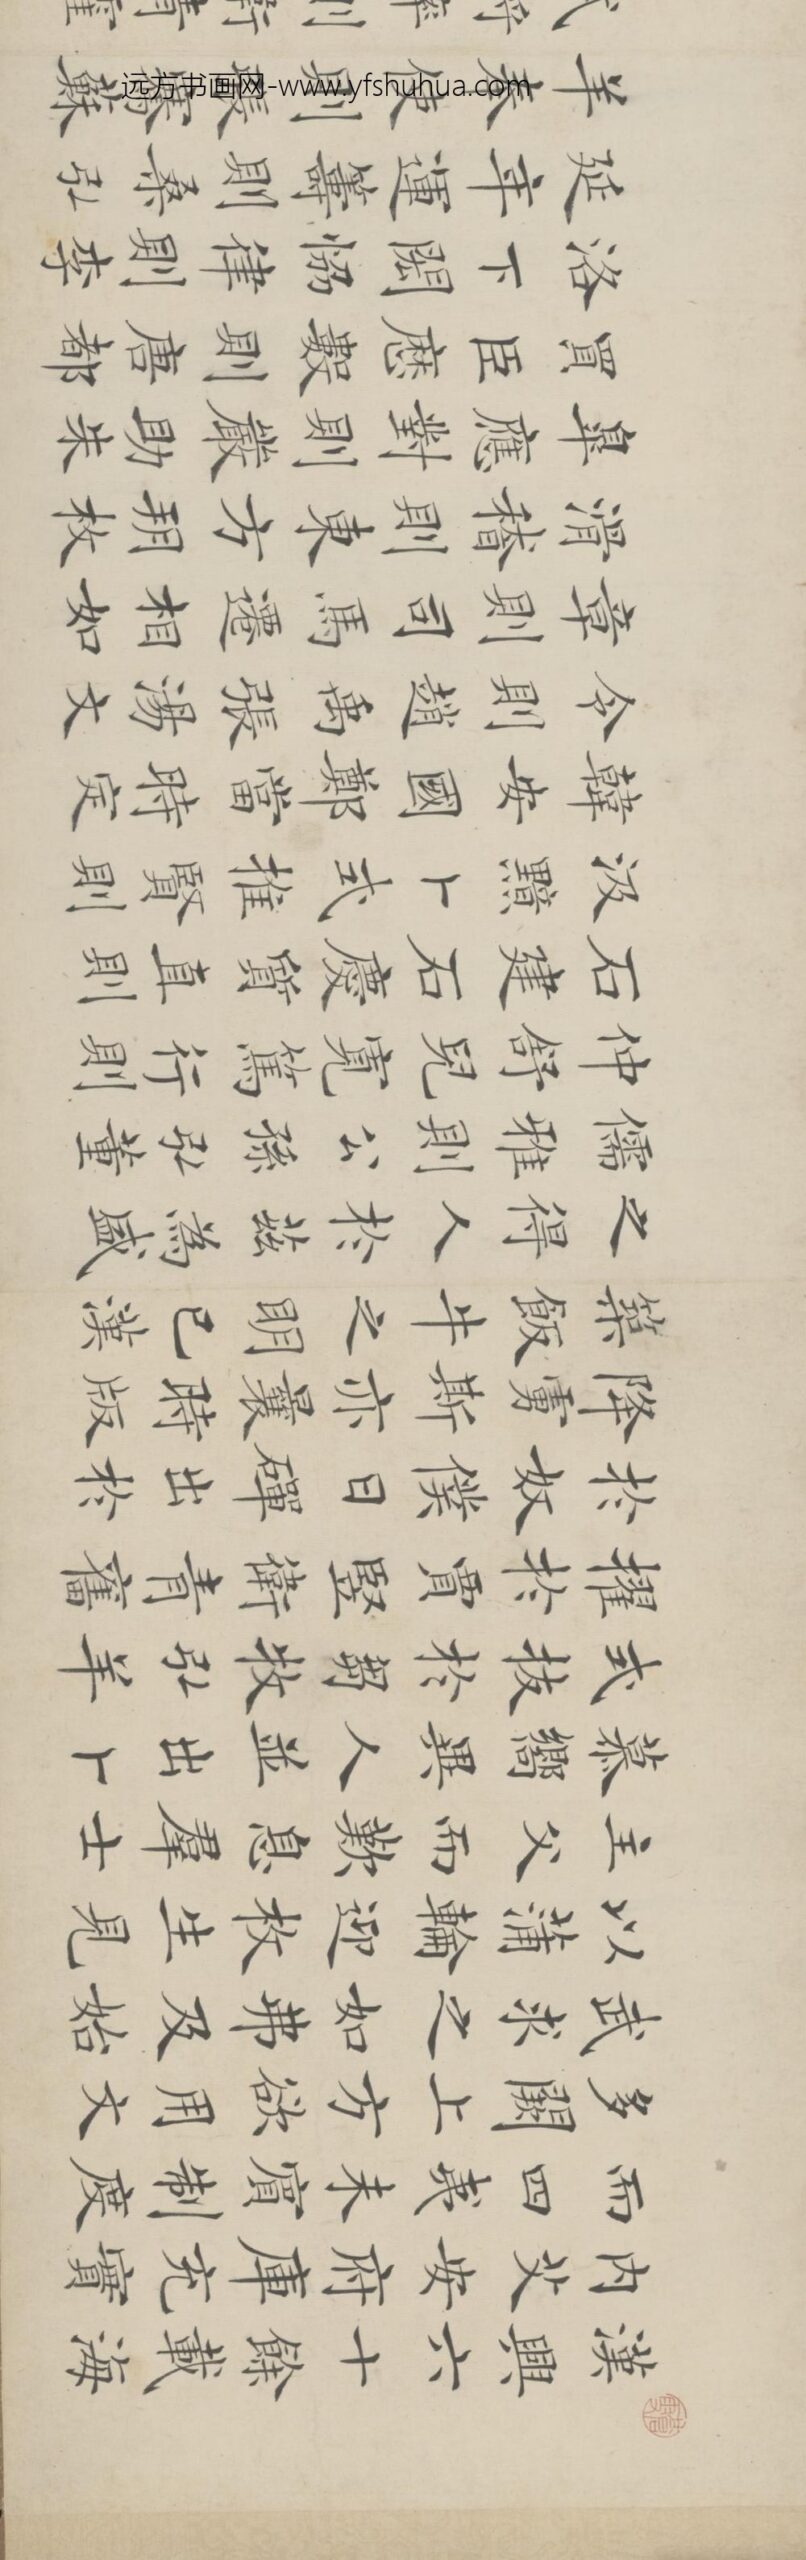 漢興六十餘載海
內艾安府庫充實
而四夷未賓制度
多闕上方欲用文
武求之如弗及始
以蒲輪迎枚生見
主父而歎息羣士
慕嚮異人並出卜
式拔於芻牧弘羊
擢於賈豎衛青奮
於奴僕日磾出於
降虜斯亦曩時版
築飯牛之明已漢
之得人於茲為盛
儒雅則公孫弘董
仲舒兒寬篤行則
石建石慶質直則
汲黯卜式推賢則
韓安國鄭當時定
令則趙禹張湯文
章則司馬遷相如
滑稽則東方朔枚
皋應對則嚴助朱
買臣厯數則唐都
洛下閎恊律則李
延年運籌則桑弘
羊奉使則張騫蘇
武將率則衛青霍
远方书画网-www.yfshuhua.com